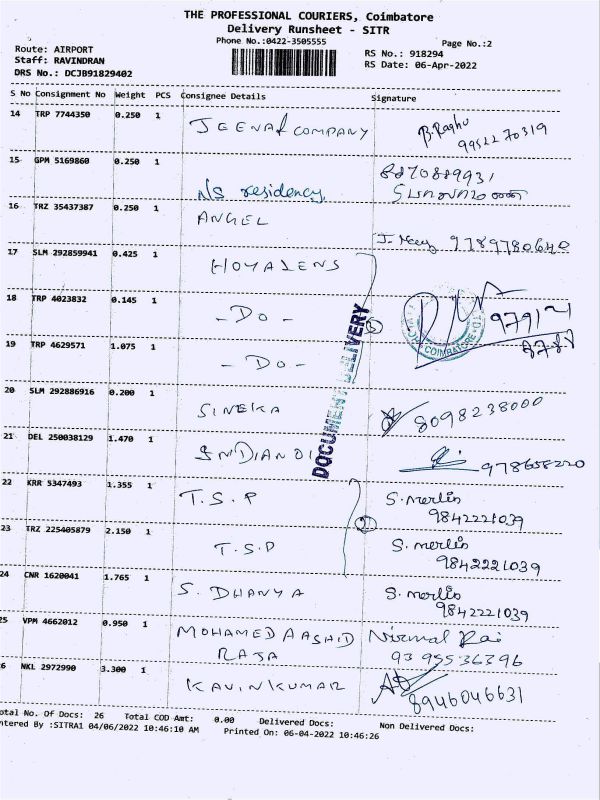 THE PROFESSIONAL COURIERS, Coimbatore
Delivery Runsheet - SITR
Phone No.:0422-3505555
Page No.:2
Route: AIRPORT
RS No.: 918294
Staff: RAVINDRAN
RS Date: 06-Apr-2022
DRS No.: DCJB91829402
S No Consignment No Weight PCS Consignee Details Signature
14 TRP 7744350 0.250 1 JEENA & COMPANY B. Raghu
9952270319
15 GPM 5169860 0.250 1 8870889931
NS residency
16 TRZ 35437387 0.250 1 ANGEL
9789780640
17 SLM 292859941 0.425 1 HOYALENS
18 TRP 4023832 0.145 1 - DO -
COIMBATORE
19 TRP 4629571 1.075 1 - DO -
DOCUMENT DELIVERY
20 SLM 292886916 0.200 1 SINEKA 8098238000
21 DEL 250038129 1.470 1 INDIAN OI 978658220
22 KRR 5347493 1.355 1 T.S.P S. merlin
9842221039
23 TRZ 225405879 2.150 1 T.S.P S. merlin
9842221039
24 CNR 1620041 1.765 1 S. DHANYA S. merlin
9842221039
25 VPM 4662012 0.950 1 MOHAMED AASHID Nirmal Rai
RAJA 9399536396
26 NKL 2972990 3.300 1 KAVINKUMAR 8946046631
otal No. Of Docs: 26 Total COD Amt: 0.00 Delivered Docs: Non Delivered Docs:
ntered By :SITRA1 04/06/2022 10:46:10 AM Printed On: 06-04-2022 10:46:26